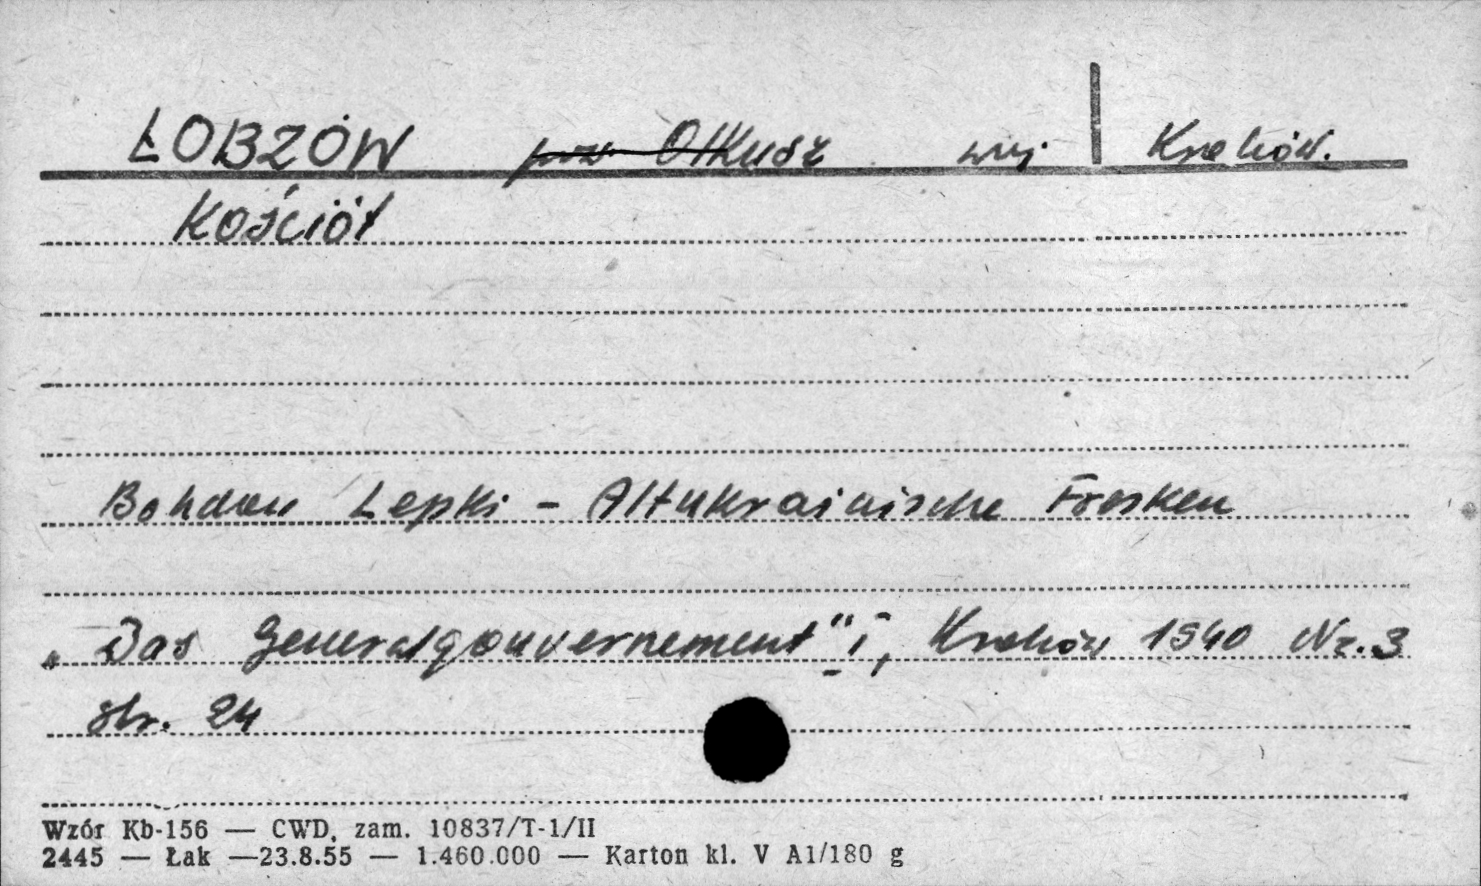 ŁOBZÓW pow. Olkusz woj Kraków.
Kościół
Bohdan Lepki - Altukrainische Fresken
„Das Generalgouvernement" I, Kraków 1940 Nr. 3
str. 24
Wzór Kb-156 — CWD, zam. 10837/T-1/II
2445 — Łak —23.8.55 — 1.460.000 — Karton kl. V A1/180 g